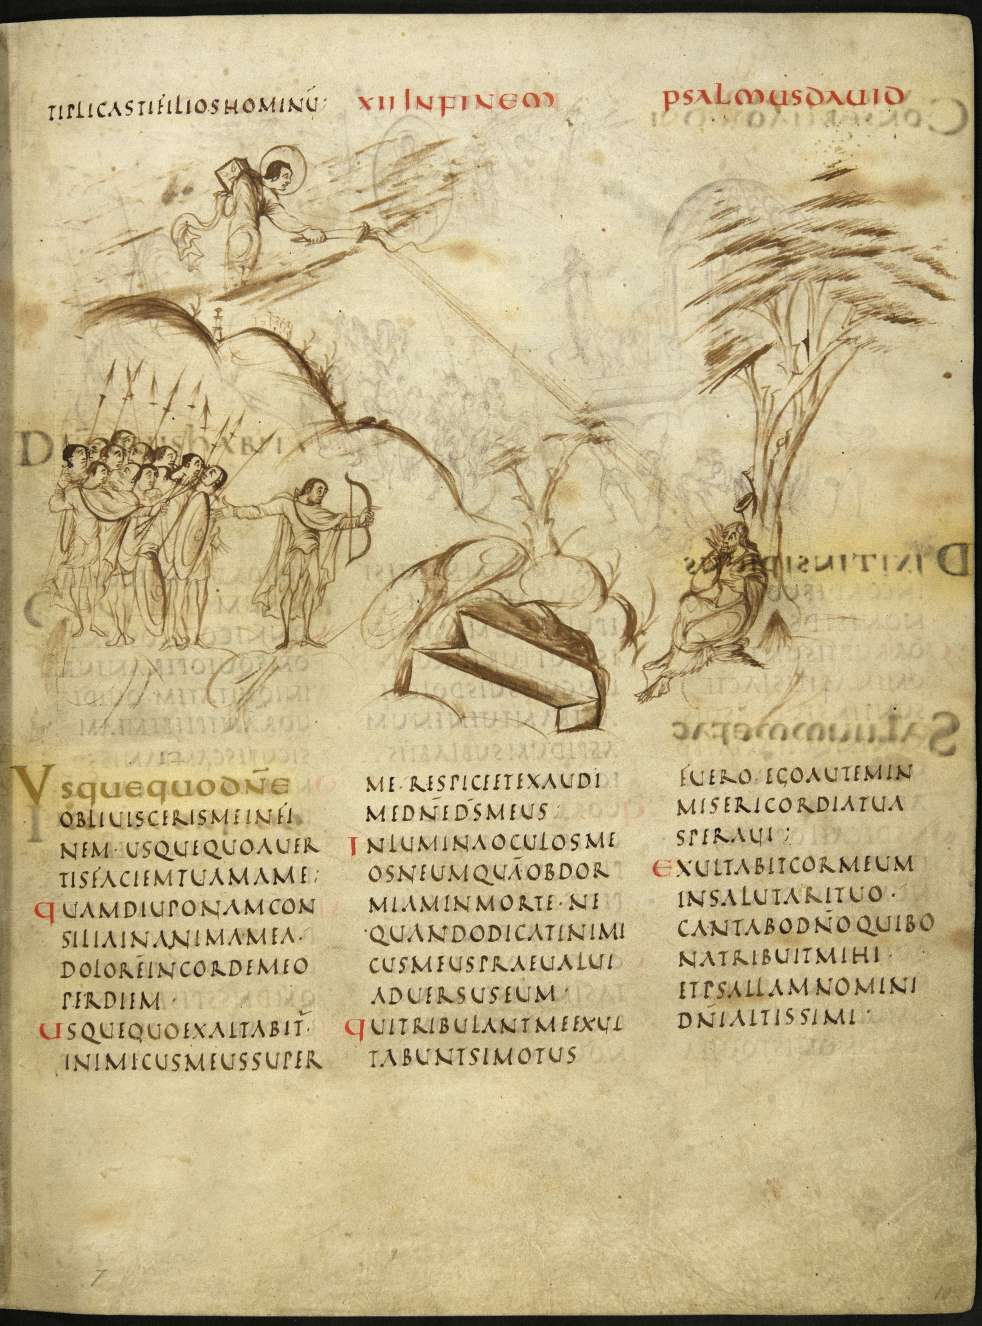 TIPLICASTIFILIOSHOMINŪ:
XII INFINEM PSALMUSDAVID
VSQUEQUODN̄E
OBLIUISCERISMEINFI
NEM·USQUEQUOAUER
TISFACIEMTUAMAME;
QUAMDIUPONAMCON
SILIAINANIMAMEA·
DOLORĒINCORDEMEO
PERDIEM·
USQUEQUOEXALTABIT̄·
INIMICUSMEUSSUPER
ME·RESPICEETEXAUDI
MEDN̄ED̄SMEUS·
INLUMINAOCULOSME
OSNEUMQUĀOBDOR
MIAMINMORTE·NE
QUANDODICATINIMI
CUSMEUSPRAEUALUI
ADUERSUSEUM·
QUITRIBULANTMEEXUL
TABUNTSIMOTUS
FUERO·EGOAUTEMIN
MISERICORDIATUA
SPERAUI;
EXULTABITCORMEUM
INSALUTARITUO·
CANTABODN̄OQUIBO
NATRIBUITMIHI·
ETPSALLAMNOMINI
DN̄IALTISSIMI·
7